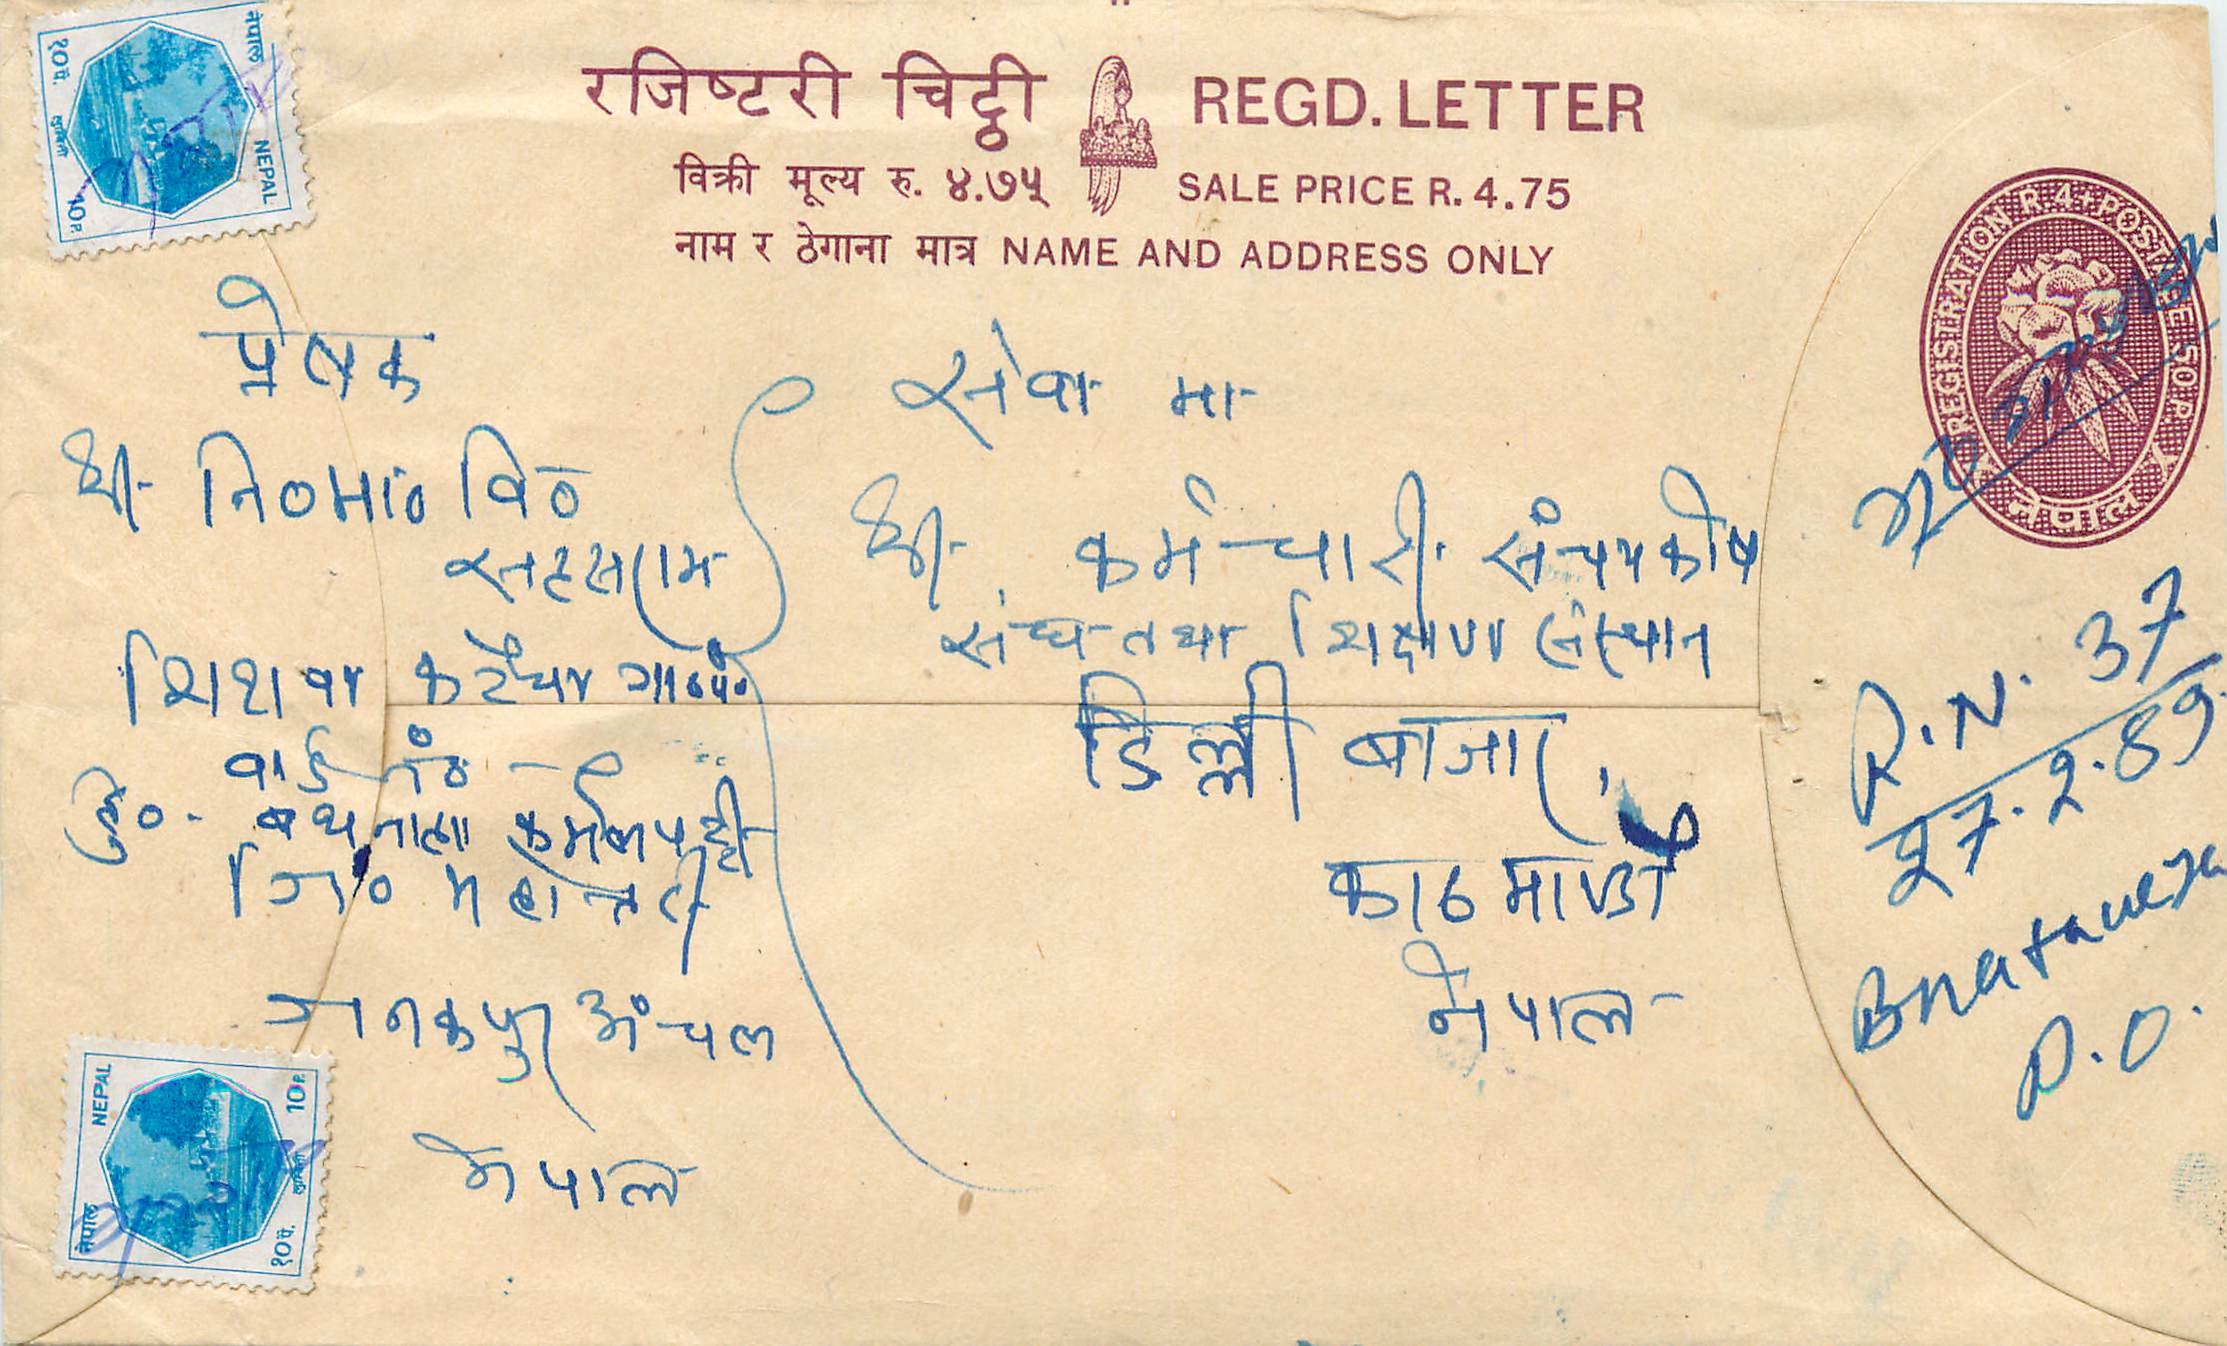 रजिष्टरी चिट्ठी REGD. LETTER
विक्री मूल्य रु. ४.७५ SALE PRICE R. 4.75
नाम र ठेगाना मात्र NAME AND ADDRESS ONLY
नेपाल
NEPAL
१०पै.
10P.
REGISTRATION R.4+POSTAGE 50P.
नेपाल
प्रेषक
श्री नि०मा० वि०
शिशवा कटैया गा०पं०
वार्ड नं०
हु०-
जि० महोत्तरी
जनकपुर अंचल
नेपाल
सेवा मा
श्री कर्मचारी संचयकोष
संघ तथा शिक्षण संस्थान
डिल्ली बाजार,
काठमाण्डौ
नेपाल
R.N. 37
27.2.89
P.O.
NEPAL
10P.
नेपाल
१०पै.